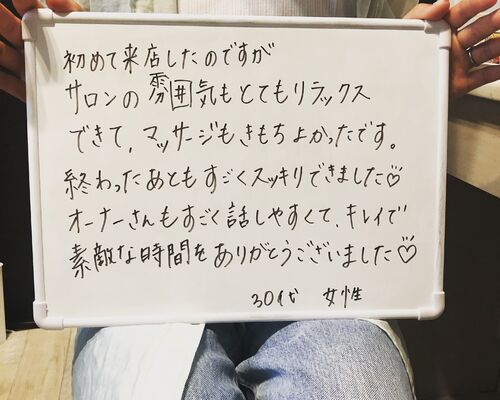 初めて来店したのですが
サロンの雰囲気もとてもリラックス
できて、マッサージもきもちよかったです。
終わったあともすごくスッキリできました♡
オーナーさんもすごく話しやすくて、キレイで
素敵な時間をありがとうございました♡
30代 女性